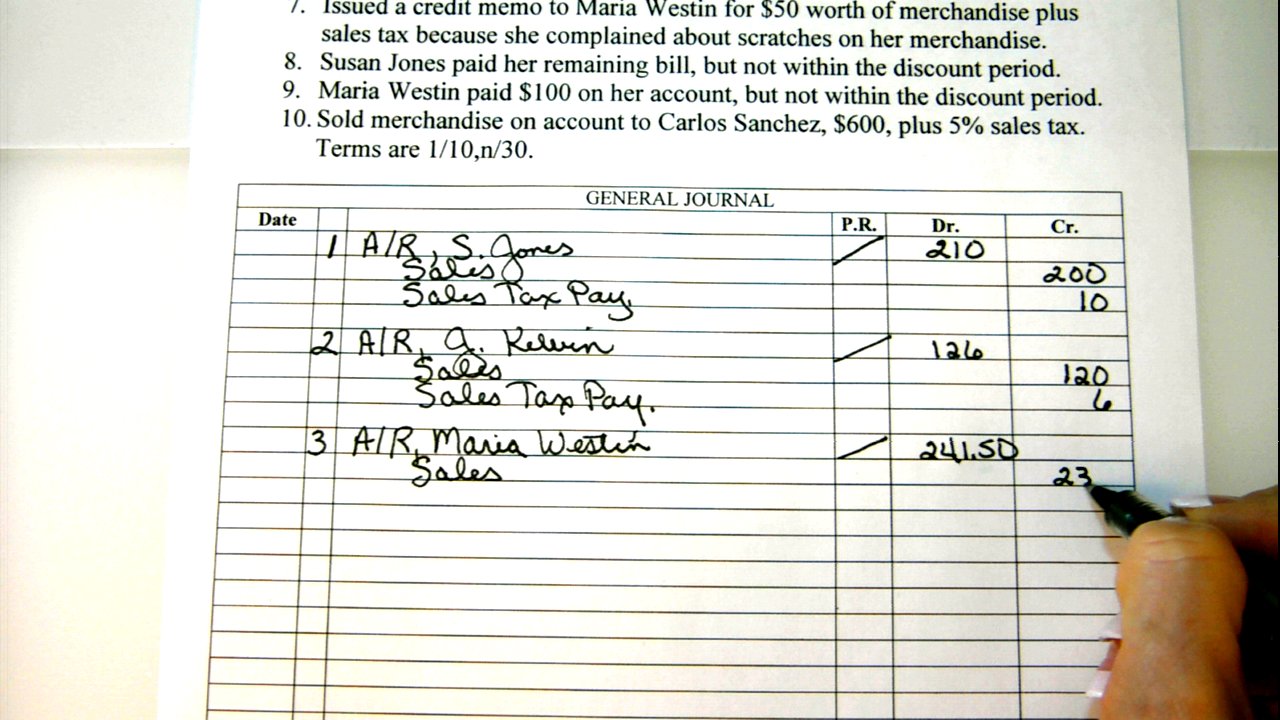 7. Issued a credit memo to Maria Westin for $50 worth of merchandise plus
sales tax because she complained about scratches on her merchandise.
8. Susan Jones paid her remaining bill, but not within the discount period.
9. Maria Westin paid $100 on her account, but not within the discount period.
10. Sold merchandise on account to Carlos Sanchez, $600, plus 5% sales tax.
Terms are 1/10,n/30.
GENERAL JOURNAL
Date P.R. Dr. Cr.
1 A/R, S. Jones 210
Sales 200
Sales Tax Pay. 10
2 A/R, A. Kelvin 126
Sales 120
Sales Tax Pay. 6
3 A/R, Maria Westin 241.50
Sales 23